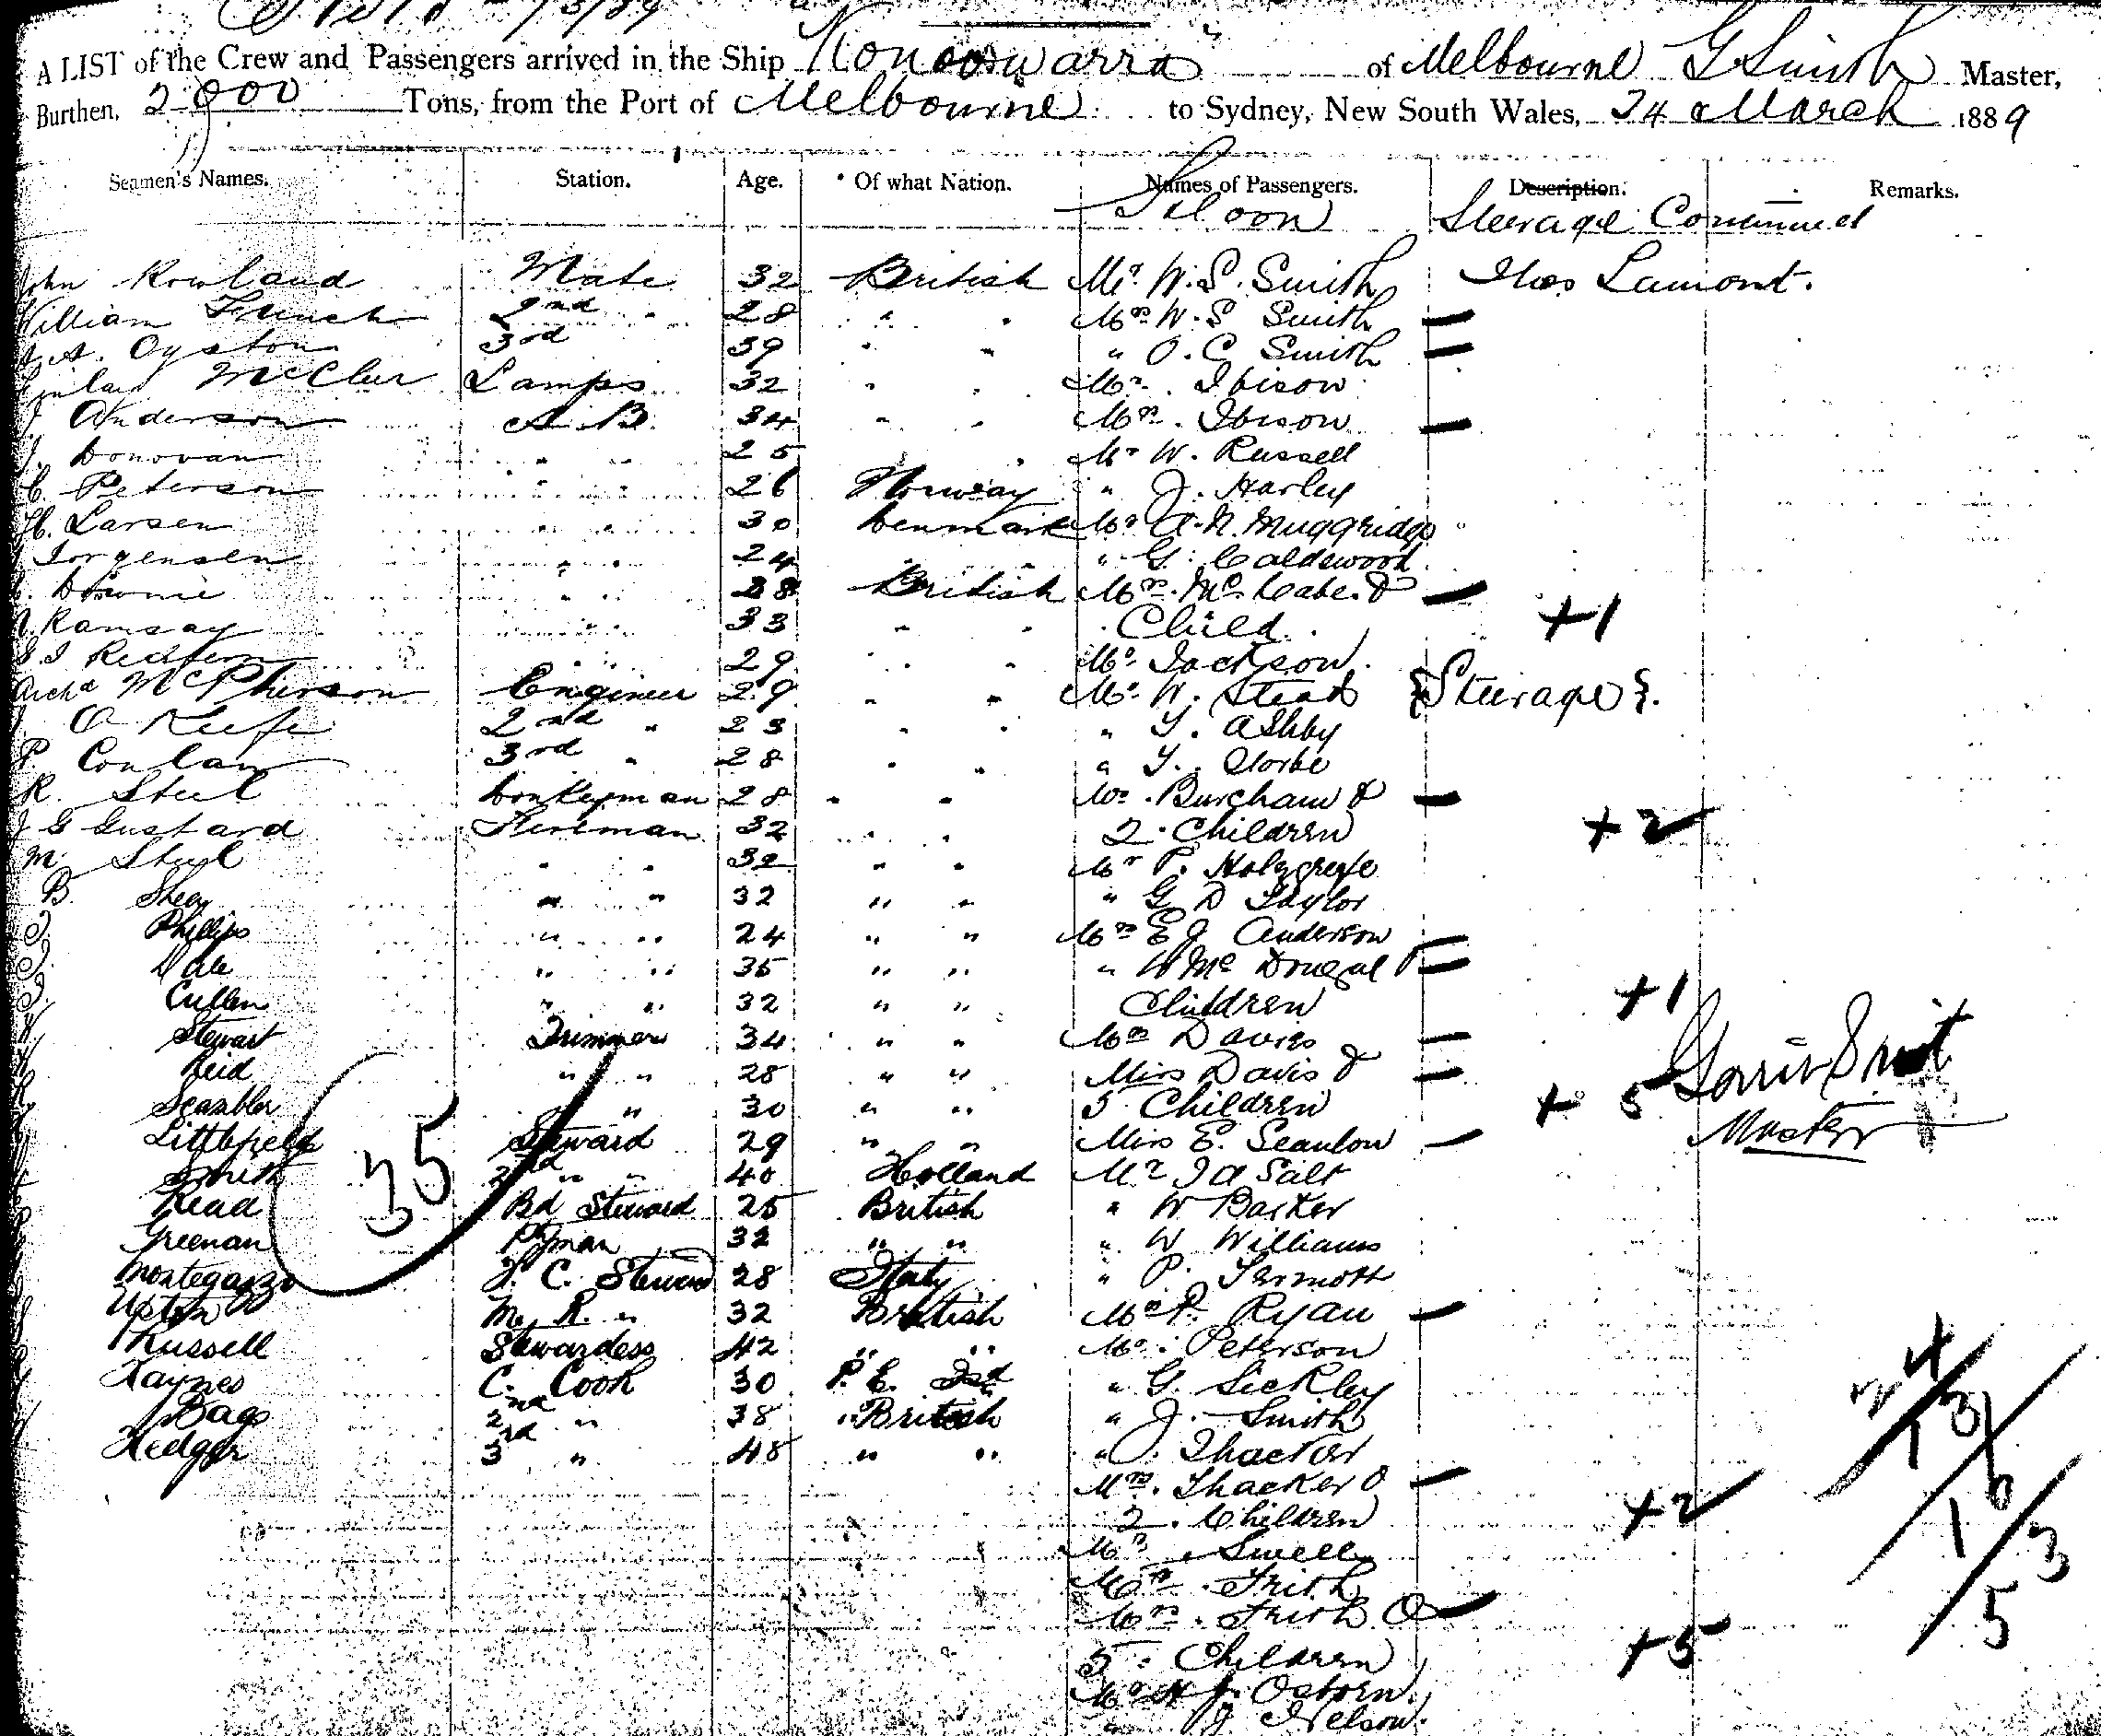 A LIST of the Crew and Passengers arrived in the Ship Konoowarra of Melbourne G Smith Master,
Burthen, 2000 Tons, from the Port of Melbourne to Sydney, New South Wales, 24 March 1889
Seamen's Names. Station. Age. Of what Nation. Names of Passengers. Description. Remarks.
Saloon Steerage Continued
John Rowland Mate 32 British Mr. W. S. Smith Thos Lamont.
William Ffrench 2nd " 28 " " Mrs W. S Smith —
A. Oyston 3rd 39 " " " O. C Smith —
McCluer Lamps 32 " " Mr. Ibison
J Anderson A. B. 34 " " Mrs. Ibison —
J. Donovan " " 25 " Mr W. Russell
C. Peterson 26 Norway " J. Harley
H. Larsen " " 30 Denmark Mr A. N. Muggridge
Jorgensen " " 24 " " " G. Caldewood
Downie " " 28 British Mrs. McCabe. & —
Ramsay " " 33 " " Child. +1
Redfern " " 29 " " Mr Jackson.
Archd McPherson Engineer 29 " " Mr W. Stead {Steerage}.
O Keefe 2nd " 23 " " " T. Ashby
P Conlan 3rd " 28 " " " T.
R. Steel Donkeyman 28 " " Mrs. Burcham & —
J G Gustard Fireman 32 " " 2 Children +2
M. Steel " " 32 " " Mr P. Holzgrefe
B. Shea " " 32 " " " G D Taylor
J. Phillips " " 24 " " Mrs E J Anderson —
J. Dale " " 35 " " " W Mc Dougal & —
J. Cullen " " 32 " " Children +1
Stewart Trimmer 34 " " Mrs Davis —
Reid " " 28 " " Miss Davis & — Smith
Scambler " " 30 " " 5 Children + 5 Master
Littlefield Steward 29 " " Miss E. Scanlon —
35
Smith 2nd " " 40 Holland Mr J A Salt
Read Bd Steward 25 British " W Barker
Greenan P'man 32 " " " W Williams
Montegazzo F. C. Steward 28 Italy " P. Termott
Upton M. R. " 32 British Mrs P. Ryan —
Russell Stewardess 42 " " Mr. Peterson
Haynes C. Cook 30 P. E. Isd " G. Sickley
Bags 2nd " 38 " British " J. Smith
Hedger 3rd " 48 " " " J. Thacker
Mrs. Thacker & —
2. Children +2
Mr. Swell
Mr. Frith
Mrs. Frith & —
5 Children +5
Mr H J. Osborn.
" J Nelson.